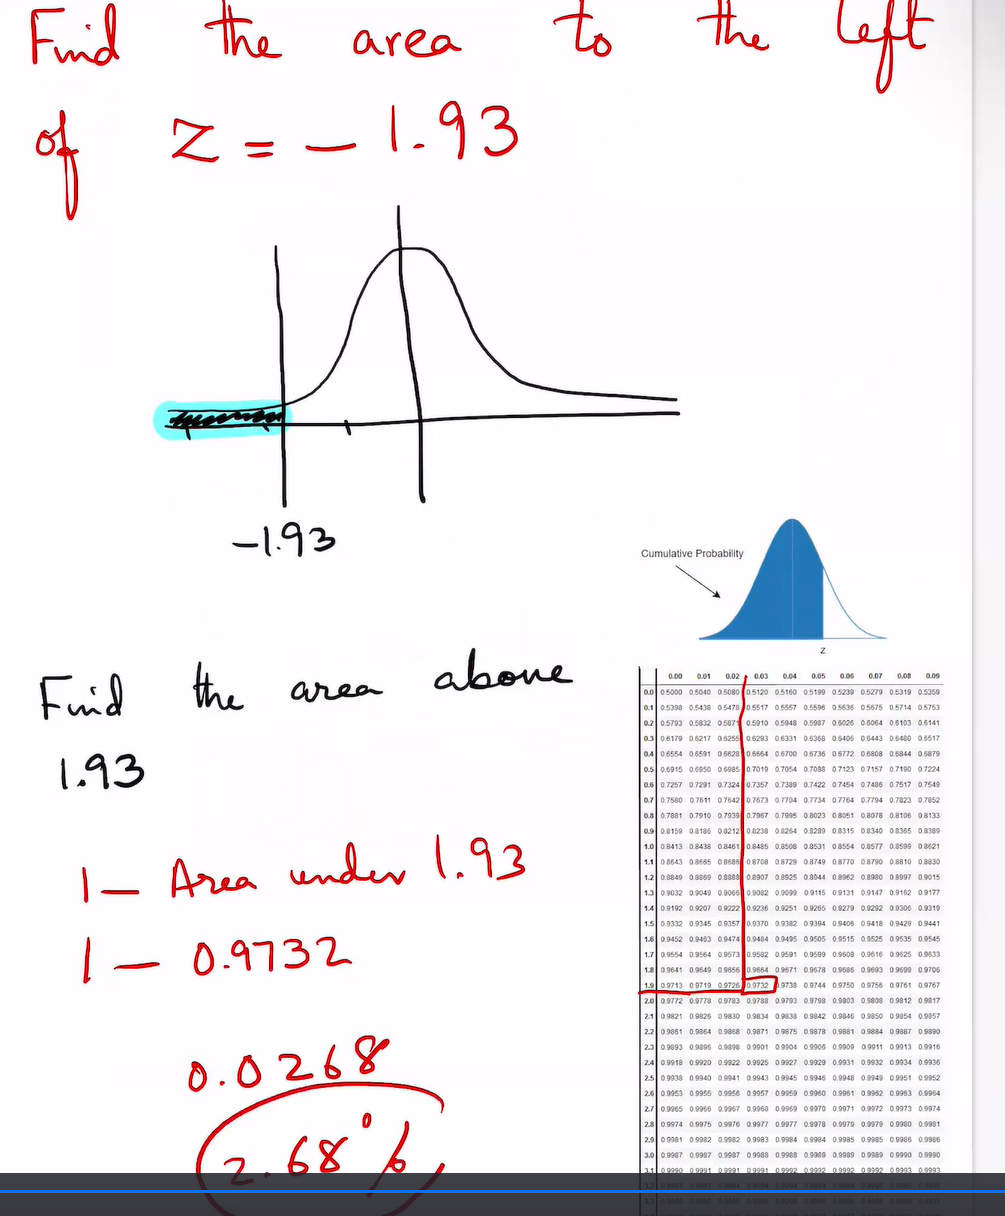 Find the area to the left
of z = - 1.93
-1.93
Cumulative Probability
z
Find the area above
1.93
1 - Area under 1.93
1 - 0.9732
0.0268
2.68%
0.00 0.01 0.02 0.03 0.04 0.05 0.06 0.07 0.08 0.09
0.0 0.5000 0.5040 0.5080 0.5120 0.5160 0.5199 0.5239 0.5279 0.5319 0.5359
0.1 0.5398 0.5438 0.5478 0.5517 0.5557 0.5596 0.5636 0.5675 0.5714 0.5753
0.2 0.5793 0.5832 0.5871 0.5910 0.5948 0.5987 0.6026 0.6064 0.6103 0.6141
0.3 0.6179 0.6217 0.6255 0.6293 0.6331 0.6368 0.6406 0.6443 0.6480 0.6517
0.4 0.6554 0.6591 0.6628 0.6664 0.6700 0.6736 0.6772 0.6808 0.6844 0.6879
0.5 0.6915 0.6950 0.6985 0.7019 0.7054 0.7088 0.7123 0.7157 0.7190 0.7224
0.6 0.7257 0.7291 0.7324 0.7357 0.7389 0.7422 0.7454 0.7486 0.7517 0.7549
0.7 0.7580 0.7611 0.7642 0.7673 0.7704 0.7734 0.7764 0.7794 0.7823 0.7852
0.8 0.7881 0.7910 0.7939 0.7967 0.7995 0.8023 0.8051 0.8078 0.8106 0.8133
0.9 0.8159 0.8186 0.8212 0.8238 0.8264 0.8289 0.8315 0.8340 0.8365 0.8389
1.0 0.8413 0.8438 0.8461 0.8485 0.8508 0.8531 0.8554 0.8577 0.8599 0.8621
1.1 0.8643 0.8665 0.8686 0.8708 0.8729 0.8749 0.8770 0.8790 0.8810 0.8830
1.2 0.8849 0.8869 0.8888 0.8907 0.8925 0.8944 0.8962 0.8980 0.8997 0.9015
1.3 0.9032 0.9049 0.9066 0.9082 0.9099 0.9115 0.9131 0.9147 0.9162 0.9177
1.4 0.9192 0.9207 0.9222 0.9236 0.9251 0.9265 0.9279 0.9292 0.9306 0.9319
1.5 0.9332 0.9345 0.9357 0.9370 0.9382 0.9394 0.9406 0.9418 0.9429 0.9441
1.6 0.9452 0.9463 0.9474 0.9484 0.9495 0.9505 0.9515 0.9525 0.9535 0.9545
1.7 0.9554 0.9564 0.9573 0.9582 0.9591 0.9599 0.9608 0.9616 0.9625 0.9633
1.8 0.9641 0.9649 0.9656 0.9664 0.9671 0.9678 0.9686 0.9693 0.9699 0.9706
1.9 0.9713 0.9719 0.9726 0.9732 0.9738 0.9744 0.9750 0.9756 0.9761 0.9767
2.0 0.9772 0.9778 0.9783 0.9788 0.9793 0.9798 0.9803 0.9808 0.9812 0.9817
2.1 0.9821 0.9826 0.9830 0.9834 0.9838 0.9842 0.9846 0.9850 0.9854 0.9857
2.2 0.9861 0.9864 0.9868 0.9871 0.9875 0.9878 0.9881 0.9884 0.9887 0.9890
2.3 0.9893 0.9896 0.9898 0.9901 0.9904 0.9906 0.9909 0.9911 0.9913 0.9916
2.4 0.9918 0.9920 0.9922 0.9925 0.9927 0.9929 0.9931 0.9932 0.9934 0.9936
2.5 0.9938 0.9940 0.9941 0.9943 0.9945 0.9946 0.9948 0.9949 0.9951 0.9952
2.6 0.9953 0.9955 0.9956 0.9957 0.9959 0.9960 0.9961 0.9962 0.9963 0.9964
2.7 0.9965 0.9966 0.9967 0.9968 0.9969 0.9970 0.9971 0.9972 0.9973 0.9974
2.8 0.9974 0.9975 0.9976 0.9977 0.9977 0.9978 0.9979 0.9979 0.9980 0.9981
2.9 0.9981 0.9982 0.9982 0.9983 0.9984 0.9984 0.9985 0.9985 0.9986 0.9986
3.0 0.9987 0.9987 0.9987 0.9988 0.9988 0.9989 0.9989 0.9989 0.9990 0.9990
3.1 0.9990 0.9991 0.9991 0.9991 0.9992 0.9992 0.9992 0.9992 0.9993 0.9993